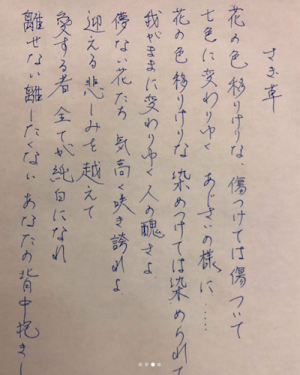 さぶ革
花の色移りけりな 傷つけては傷ついて
七色に変わりゆく あじさいの様に……
花の色移りけりな 染めつけては染められて
我がままに変わりゆく人の醜さよ
儚ない花たち 気高く咲き誇れよ
迎える悲しみを越えて
愛する者 全てが純白になれ
離せない離したくない あなたの背中抱きし